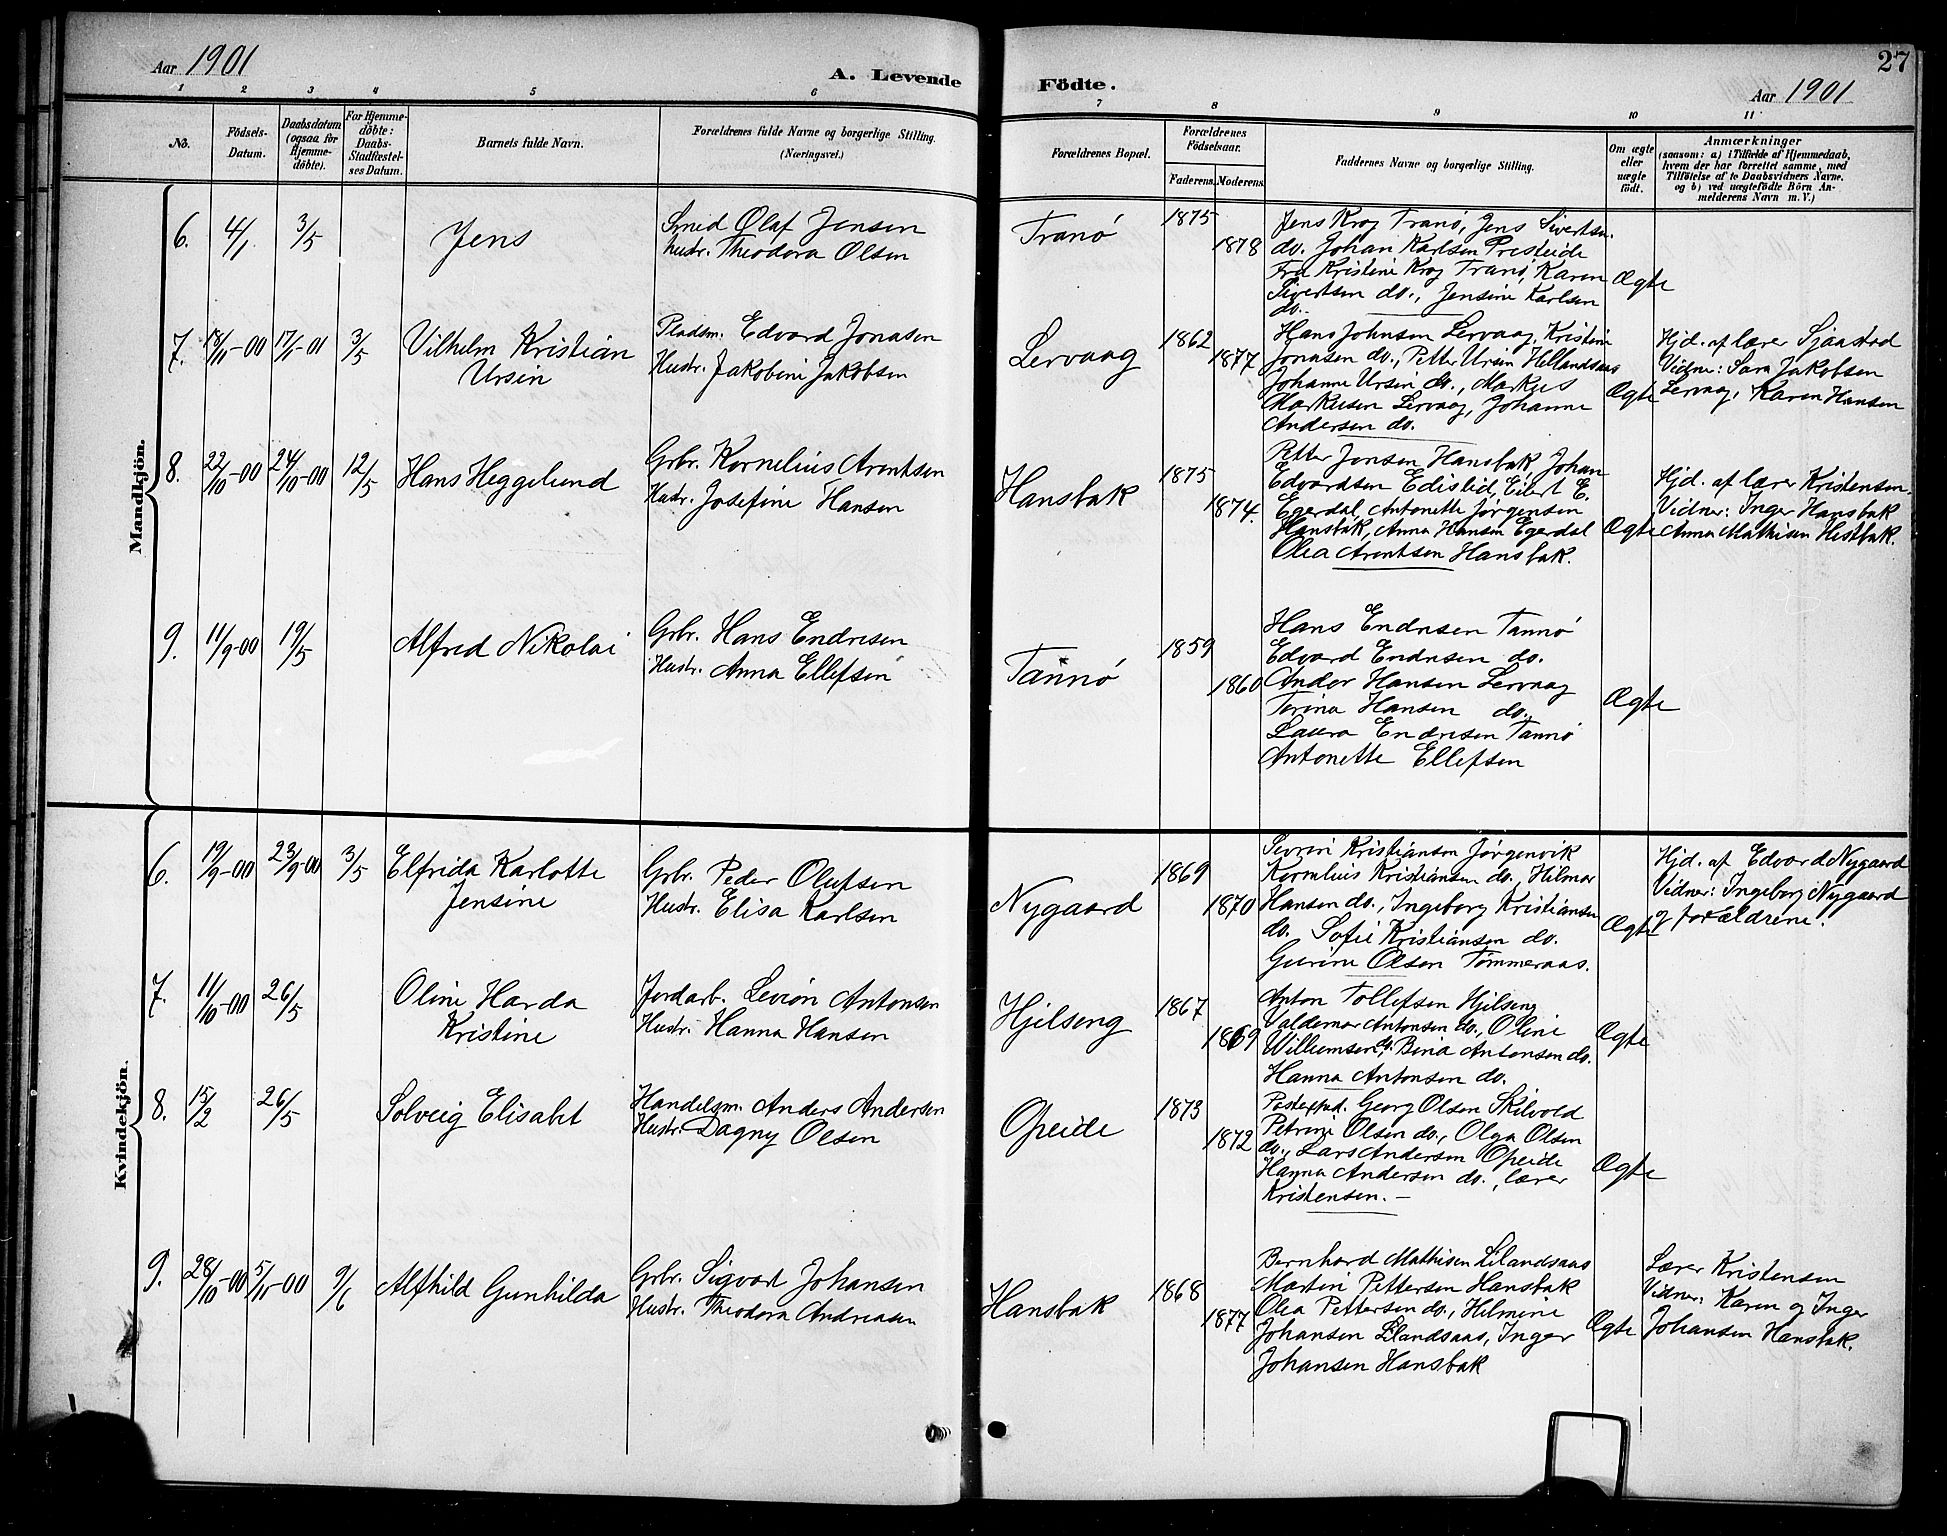 Aar 1901
A. Levende
Födte.
Aar 1901
27
1 2 3 4 5 6 7 8 9 10 11
No.
Födsels-
Datum.
Daabsdatum
(ogsaa for
Hjemme-
döbte).
For Hjemme-
döbte:
Daabs-
Stadfæstel-
ses Datum.
Barnets fulde Navn.
Forældrenes fulde Navne og borgerlige Stilling.
(Næringsvei.)
Forældrenes Bopæl.
Forældrenes
Födselsaar.
Faderens. Moderens.
Faddernes Navne og borgerlige Stilling.
Om ægte
eller
uægte
födt.
Anmærkninger
(saasom: a) i Tilfælde af Hjemmedaab,
hvem der har forrettet samme, med
Tilföielse af to Daabsvidners Navne.
og b) ved uægtefödte Börn An-
melderens Navn m. V.)
Mandkjön.
6. 4/1 3/5
Jens
Smed Olaf Jensen
Hustr. Theodora Olsen
Tranö
1875
1878
Jens Krog Tranö, Jens Sivertsn.
do. Johan Karlsen Presteide
Fru Kristine Krog Tranö, Karen
Sivertsen do., Jensine Karlsen
do.
Ægte
7. 18/11-00 17/1-01 3/5
Vilhelm Kristian
Ursin
Pladsm. Edvard Jonasen
Hustr. Jakobine Jakobsen
Lervaag
1862
1877
Hans Johnsen Lervaag, Kristine
Jonasen do., Petter Ursin Hellandsaas
Johanne Ursin do., Markus
Markusen Lervaag, Johanne
Andersen do.
Ægte
Hjd. af lærer Sjaastad
Vidner: Sara Jakobsen
Lervaag, Karen Hansen
8. 22/10-00 24/10-00 12/5
Hans Heggelund
Grbr. Kornelius Arentsen
Hustr. Josefine Hansen
Hansbak
1875
1874.
Petter Jensen Hansbak, Johan
Edvardsen Edislid, Eilert E.
Egerdal, Antonette Jörgensen
Hansbak, Anna Hansen Egerdal
Olea Arentsen Hansbak.
Ægte
Hjd. af lærer Kristensen.
Vidner: Inger Hansbak
Anna Mathisen Hestbak.
9. 11/9-00 19/5
Alfred Nikolai
Grbr. Hans Endresen
Hustr. Anna Ellefsen
Tannö
1859
1860
Hans Endresen Tannö
Edvard Endresen do.
Andor Hansen Lervaag
Terina Hansen do.
Laura Endresen Tannö
Antonette Ellefsen
Ægte
Kvindekjön.
6. 19/9-00 23/9-00 3/5
Elfrida Karlotte
Jensine
Grbr. Peder Olufsen
Hustr. Elisa Karlsen
Nygaard
1869
1870
Severin Kristiansen Jörgenvik
Kornelius Kristiansen do., Hilmar
Hansen do., Ingeborg Kristiansen
do. Sofie Kristiansen do.
Gurine Olsen Tömmeraas.
Ægte
Hjd. af Edvard Nygaard
Vidner: Ingeborg Nygaard
og forældrene.
7. 11/10-00 26/5
Oline Harda
Kristine
Jordarb. Levion Antonsen
Hustr. Hanna Hansen
Hjelseng
1867
1869
Anton Tollefsen Hjelseng
Valdemar Antonsen do., Oline
Willumsen do. Bina Antonsen do.
Hanna Antonsen do.
Ægte
8. 15/2 26/5
Solveig Elisabet
Handelsm. Anders Andersen
Hustr. Dagny Olsen
Opeide
1873
1872
Georg Olsen Skilvold
Petrine Olsen do., Olga Olsen
do., Lars Andersen Opeide
Hanna Andersen do., lærer
Kristensen. —
Ægte
9. 28/10-00 5/11-00 9/6
Alfhild Gunhilda
Grbr. Sigvart Johansen
Hustr. Theodora Andreasen
Hansbak
1868
1877
Bernhard Mathisen Elilandsaas
Martin Pettersen Hansbak
Olea Pettersen do., Helmine
Johansen Elilandsaas, Inger
Johansen Hansbak
Ægte
Lærer Kristensen
Vidner: Karen og Inger
Johansen Hansbak.